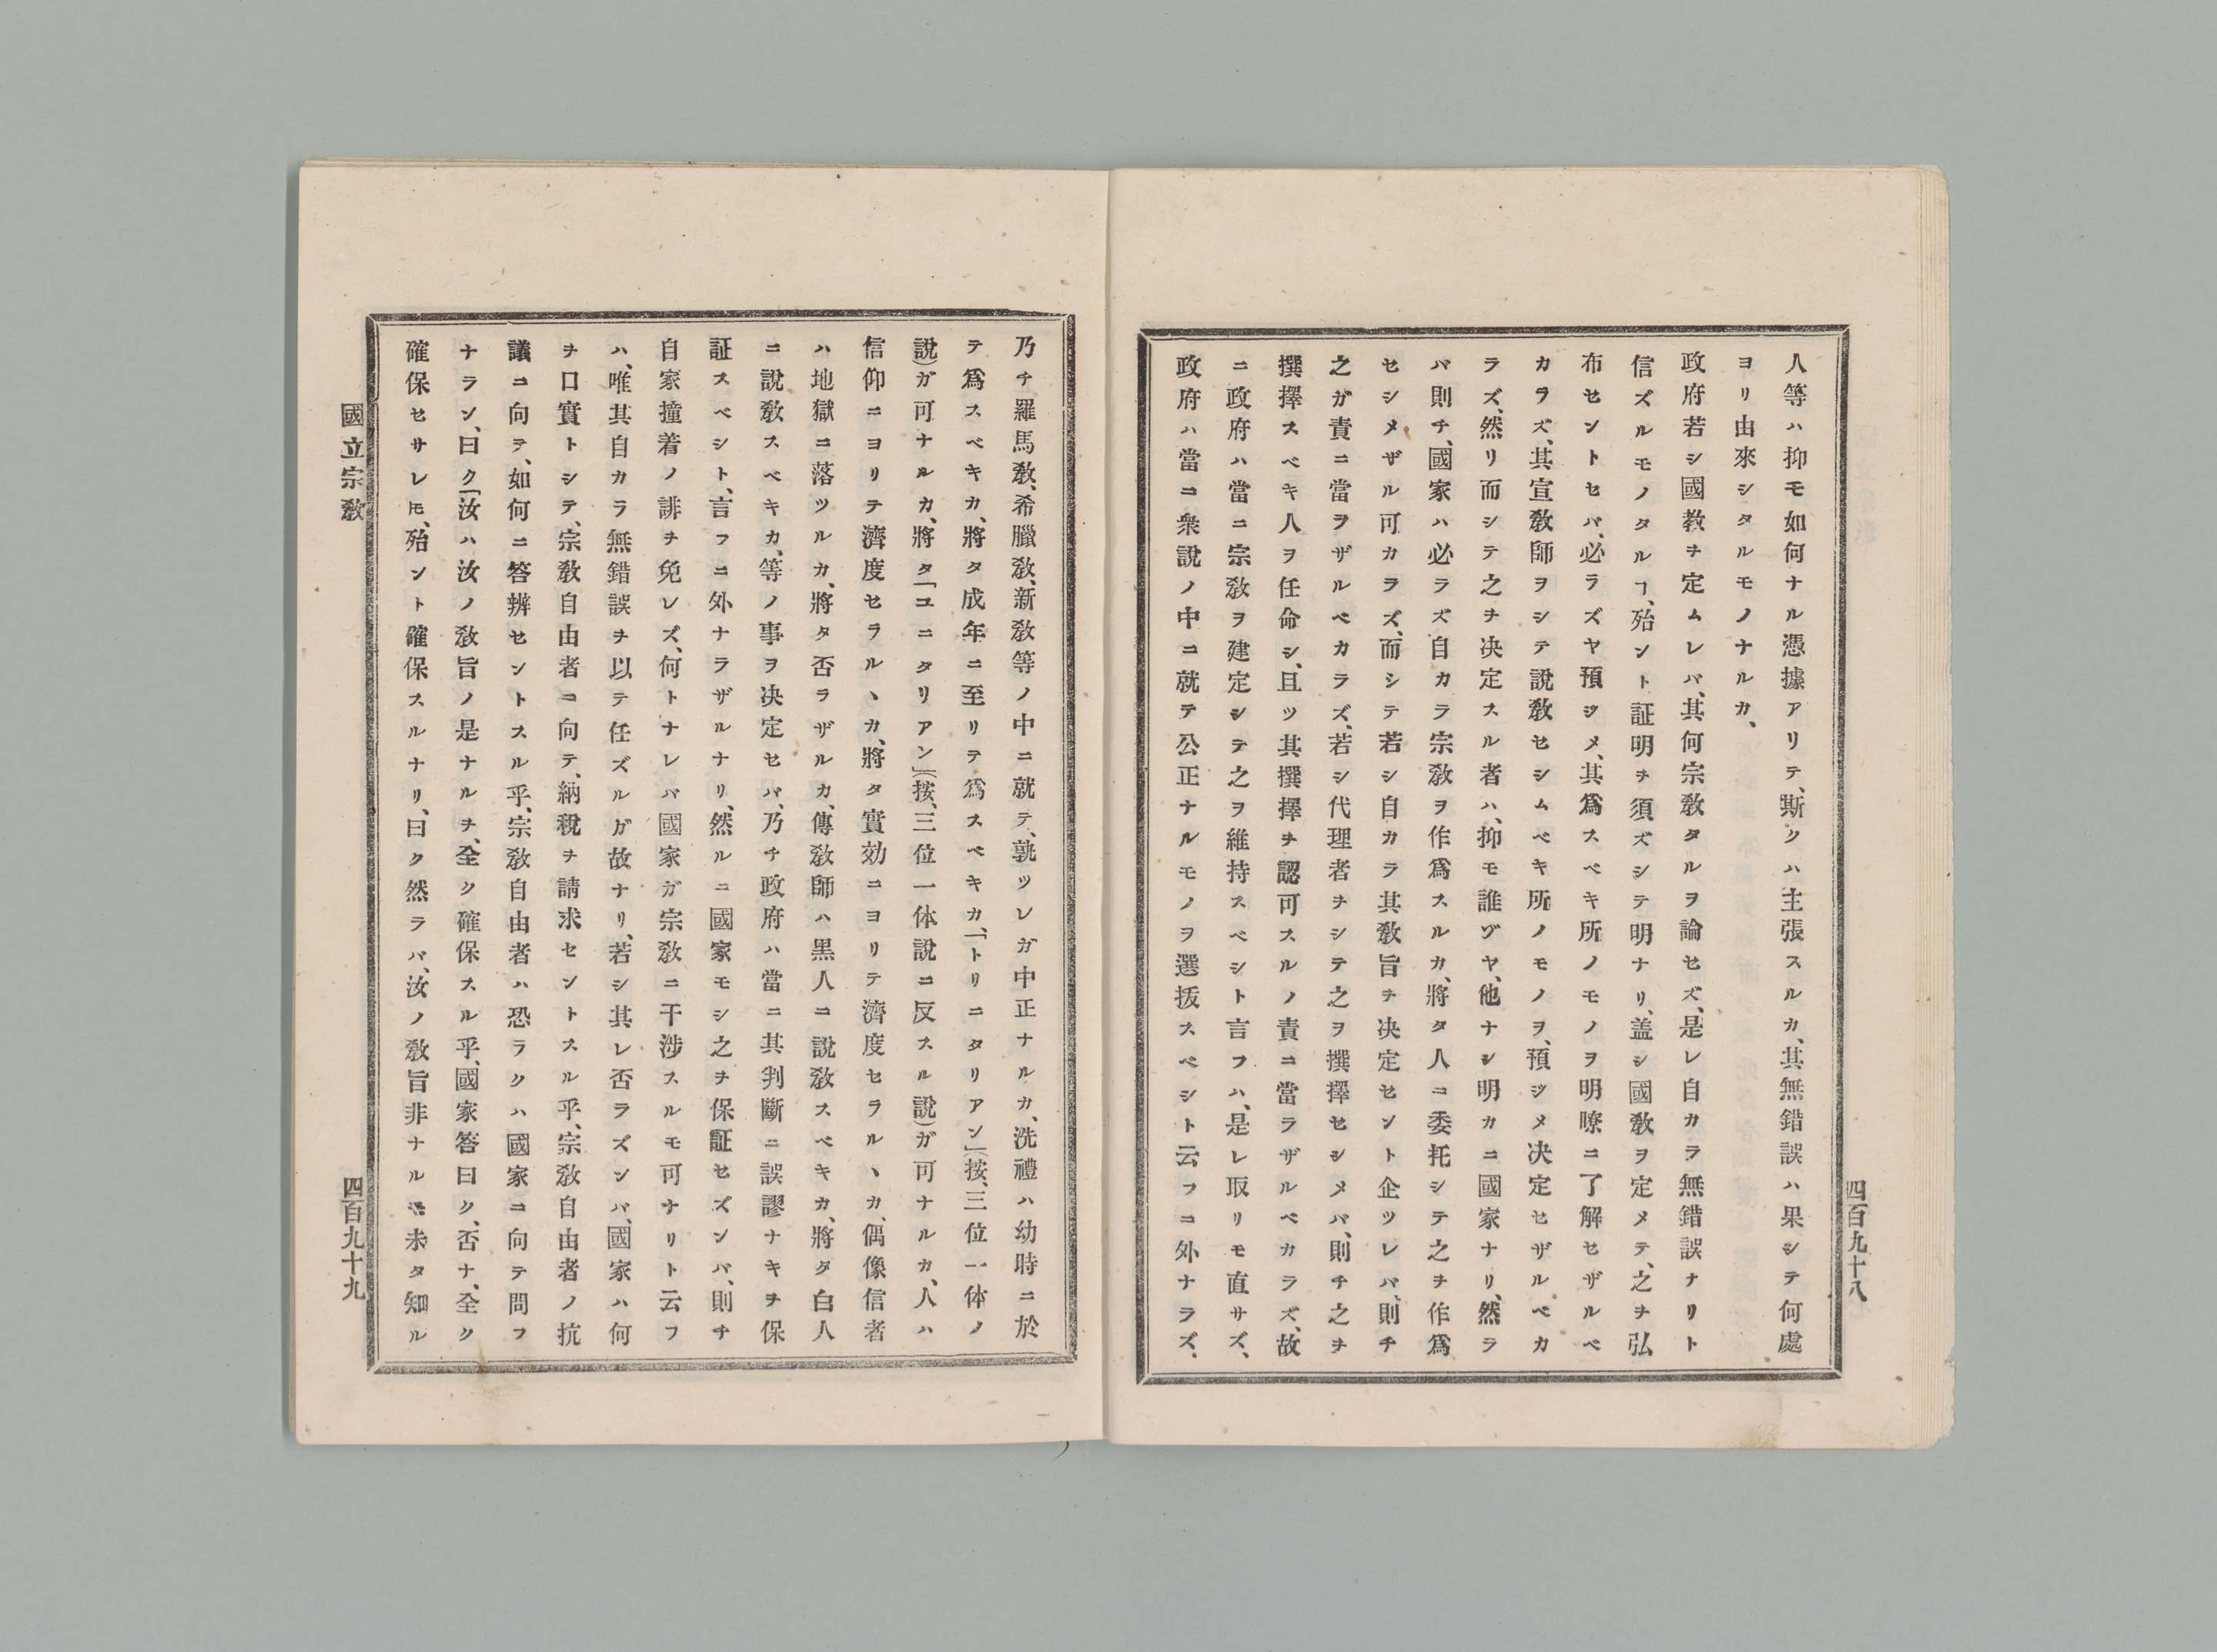 人等ハ抑モ如何ナル憑據アリテ、斯クハ主張スルカ、其無錯誤ハ果シテ何處
ヨリ由來シタルモノナルカ、
政府若シ國教ヲ定ムレバ、其何宗敎タルヲ論セズ、是レ自カラ無錯誤ナリト
信ズルモノタルヿ、殆ント証明ヲ須ズシテ明ナリ、盖シ國敎ヲ定メテ、之ヲ弘
布セントセバ、必ラズヤ預ジメ、其爲スベキ所ノモノヲ明瞭ニ了解セザルベ
カラズ、其宣敎師ヲシテ說敎セシムベキ所ノモノヲ、預ジメ决定セザルベカ
ラズ、然リ而シテ之ヲ决定スル者ハ、抑モ誰ゾヤ、他ナシ明カニ國家ナリ、然ラ
バ則チ、國家ハ必ラズ自カラ宗敎ヲ作爲スルカ、將タ人ニ委托シテ之ヲ作爲
セシメザル可カラズ、而シテ若シ自カラ其敎旨ヲ决定セント企ツレバ、則チ
之ガ責ニ當ヲザルベカラズ、若シ代理者ヲシテ之ヲ撰擇セシメバ、則チ之ヲ
撰擇スベキ人ヲ任命シ、且ツ其撰擇ヲ認可スルノ責ニ當ラザルベカラズ、故
ニ政府ハ當ニ宗敎ヲ建定シテ之ヲ維持スベシト言フハ、是レ取リモ直サズ、
政府ハ當ニ衆說ノ中ニ就テ公正ナルモノヲ選拔スベシト云フニ外ナラズ、
四百九十八
乃チ羅馬敎、希臘敎、新敎等ノ中ニ就テ、孰ツレガ中正ナルカ、洗禮ハ幼時ニ於
テ爲スベキカ、將タ成年ニ至リテ爲スベキカ、「トリニタリアン」(按、三位一体ノ
說)ガ可ナルカ、將タ「ユニタリアン」(按、三位一体說ニ反スル說)ガ可ナルカ、人ハ
信仰ニヨリテ濟度セラルヽカ、將タ實効ニヨリテ濟度セラルヽカ、偶像信者
ハ地獄ニ落ツルカ、將タ否ラザルカ、傳敎師ハ黒人ニ說敎スベキカ、將タ白人
ニ說敎スベキカ、等ノ事ヲ决定セバ、乃チ政府ハ當ニ其判斷ニ誤謬ナキヲ保
証スベシト、言フニ外ナラザルナリ、然ルニ國家モシ之ヲ保証セズンバ、則チ
自家撞着ノ誹ヲ免レズ、何トナレバ國家ガ宗敎ニ干渉スルモ可ナリト云フ
ハ、唯其自カラ無錯誤ヲ以テ任ズルガ故ナリ、若シ其レ否ラズンバ、國家ハ何
ヲ口實トシテ、宗敎自由者ニ向テ、納稅ヲ請求セントスル乎、宗敎自由者ノ抗
議ニ向テ、如何ニ答辨セントスル乎、宗敎自由者ハ恐ラクハ國家ニ向テ問フ
ナラン、曰ク「汝ハ汝ノ敎旨ノ是ナルヲ、全ク確保スル乎、國家答曰ク、否ナ、全ク
確保セサレㇳモ、殆ント確保スルナリ、曰ク然ラバ、汝ノ敎旨非ナルモ未タ知ル
國立宗敎
四百九十九